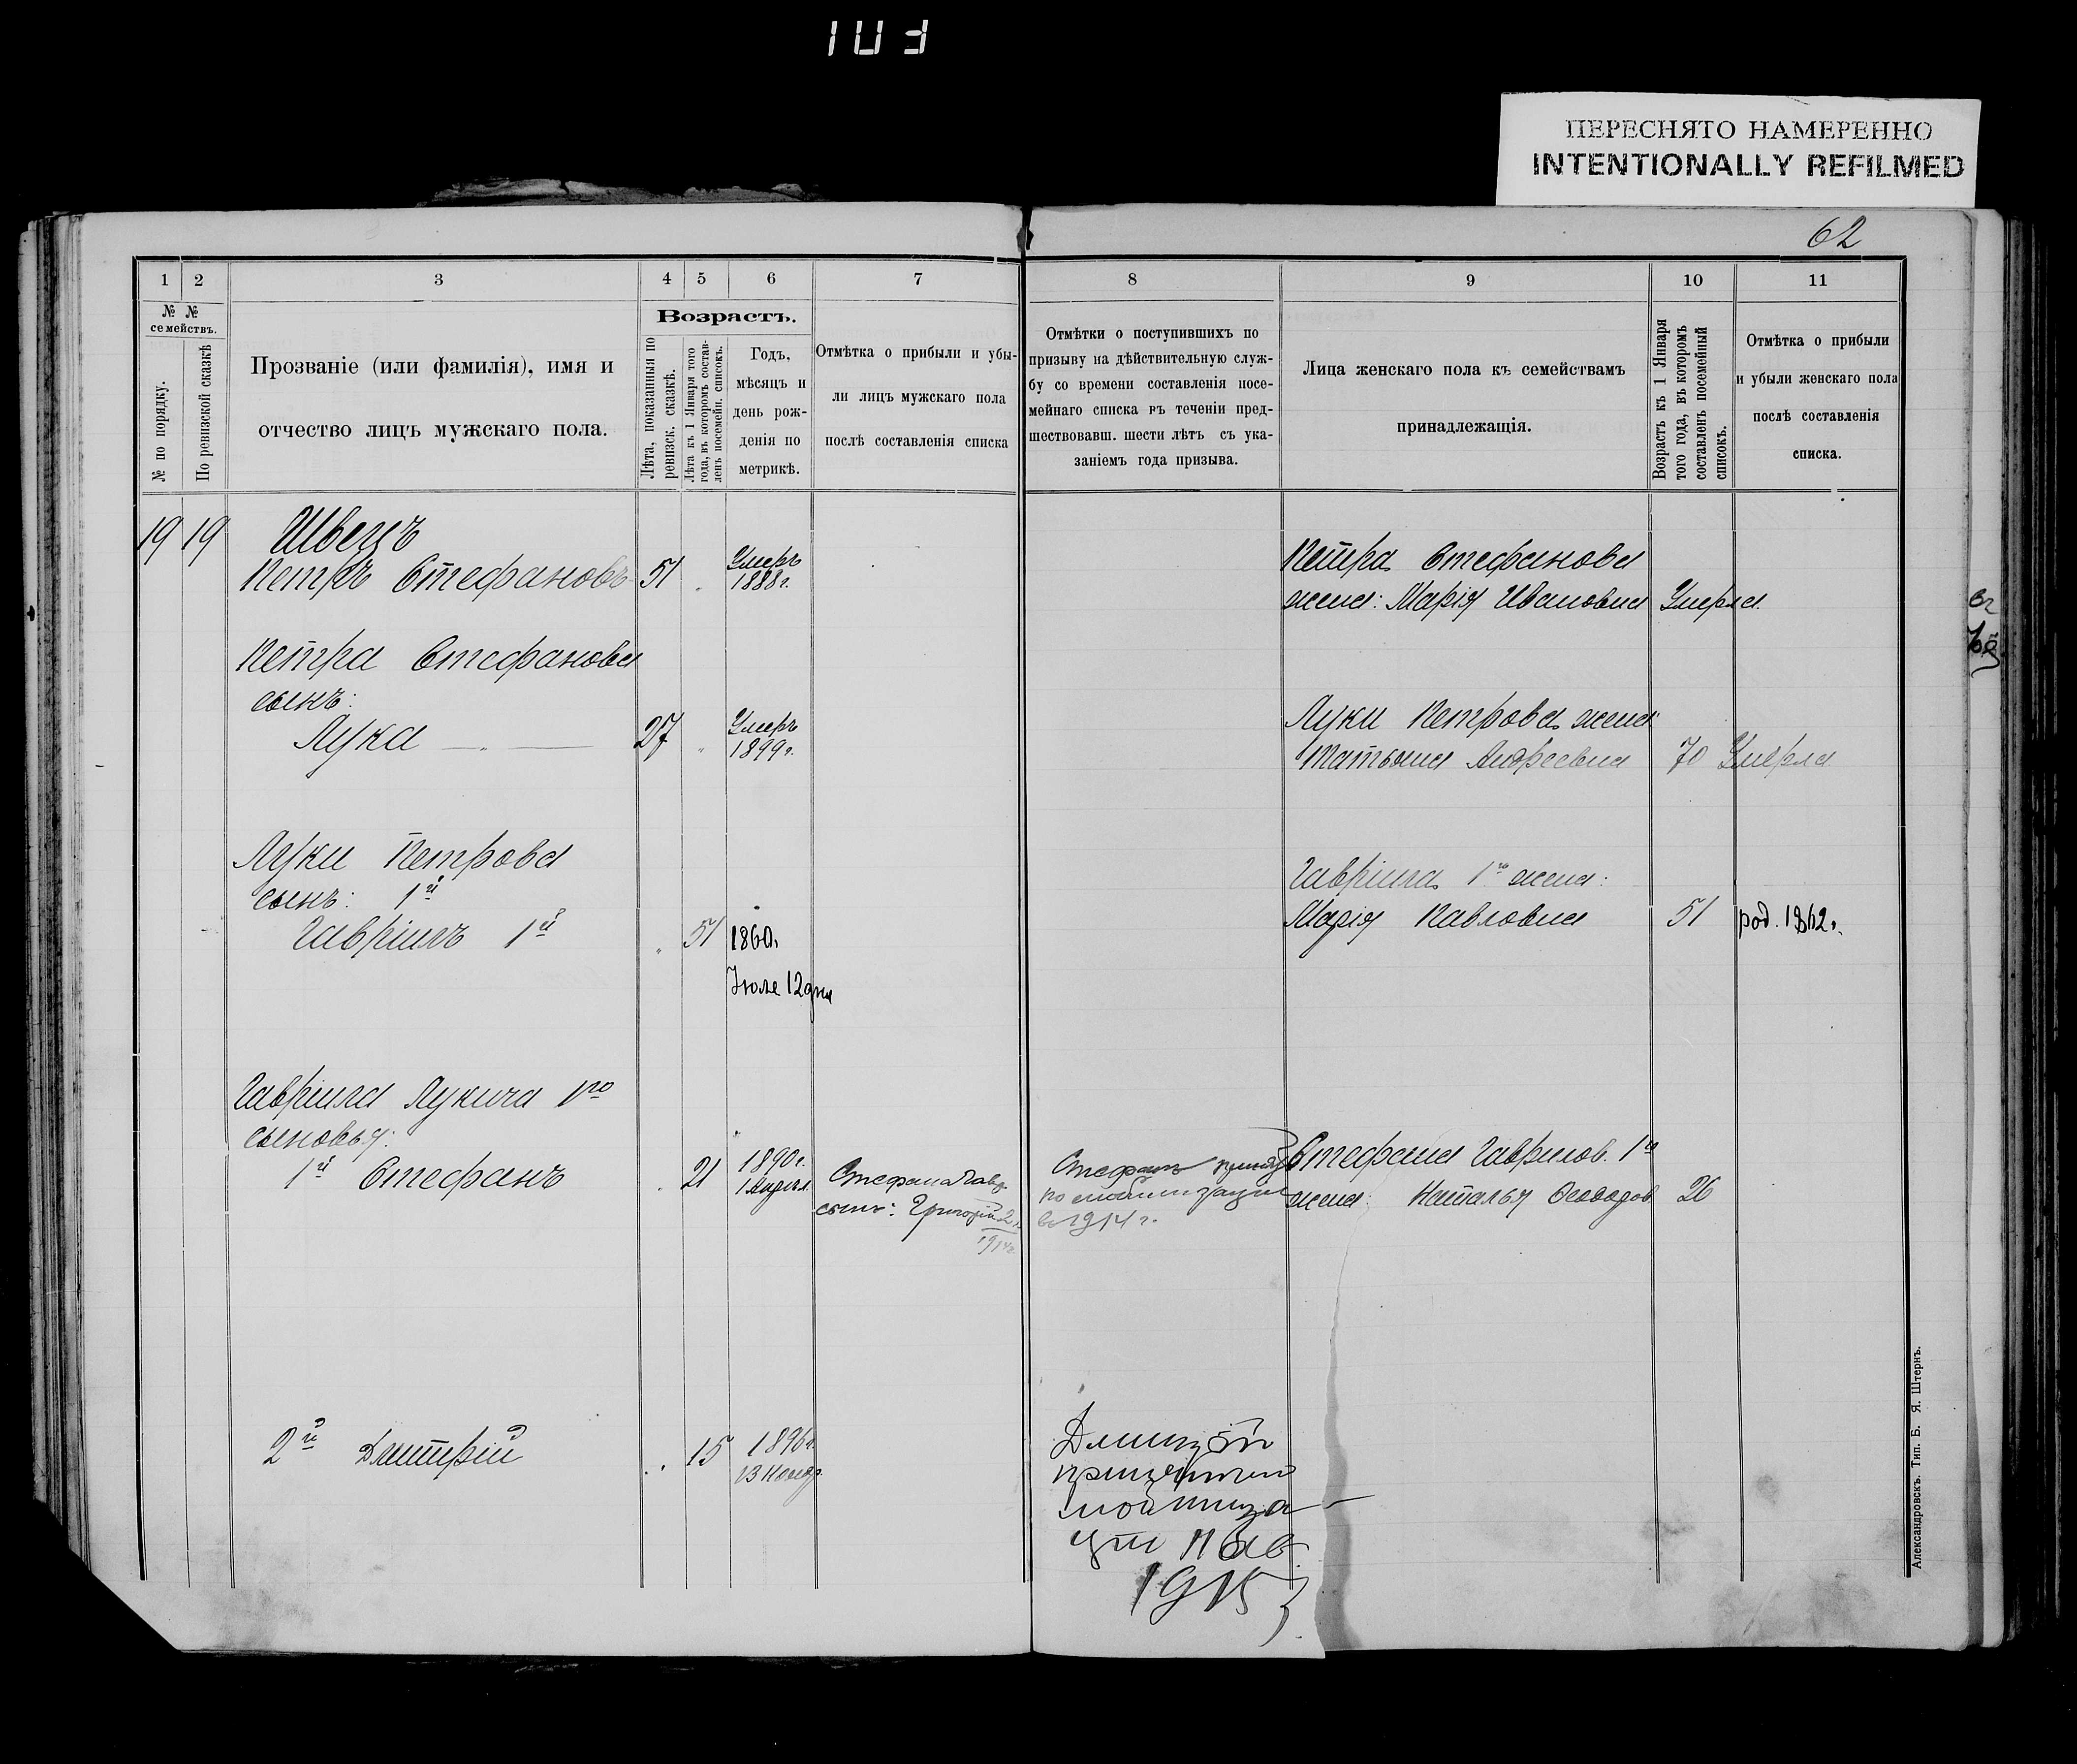 103
ПЕРЕСНЯТО НАМЕРЕННО
INTENTIONALLY REFILMED
62
1 2 3 4 5 6 7 8 9 10 11
№ № семействъ.
№ по порядку.
По ревизской сказкѣ
Прозваніе (или фамилія), имя и
отчество лицъ мужскаго пола.
Возрастъ.
Лѣта, показанныя по
ревизск. сказкѣ.
Лѣта къ 1 Января того
года, въ которомъ состав-
ленъ посемейн. списокъ.
Годъ,
мѣсяцъ и
день рож-
денія по
метрикѣ.
Отмѣтка о прибыли и убы-
ли лицъ мужскаго пола
послѣ составленія списка
Отмѣтки о поступившихъ по
призыву на дѣйствительную служ-
бу со времени составленія посе-
мейнаго списка въ теченіи пред-
шествовавш. шести лѣтъ съ ука-
заніемъ года призыва.
Лица женскаго пола къ семействамъ
принадлежащія.
Возрастъ къ 1 Января
того года, въ которомъ
составленъ посемейный
списокъ.
Отмѣтка о прибыли
и убыли женскаго пола
послѣ составленія
списка.
19 19 Швецъ
Петръ Стефановъ 51 Умеръ
1888 г.
Петра Стефанова
жена: Марія Ивановна Умерла.
Петра Стефанова
сынъ:
Лука 27 Умеръ
1899 г.
Луки Петрова жена
Татьяна Андреевна 70 Умерла
Луки Петрова
сынъ: 1й
Гавріилъ 1й 51 1860г
Іюле 12 дня
Гавріила 1го жена:
Марія Павловна 51 род. 1862 г.
Гавріила Лукича 1го
сыновья:
1й Стефанъ 21 1890 г.
1 Апрѣл.
Стефана Гавр.
сынъ: Григорій 2 л.
1914 г.
Стефанъ призв.
по мобилизаціи
въ 1914 г.
Стефана Гаврилов. 1го
жена: Наталья Ѳеодоров 26
2й Дмитрій 15 1896 г.
23 Ноябр.
Дмитрій
мобилиза-
ціи
1915 г.
Александровскъ. Тип. Б. Я. Штернъ.